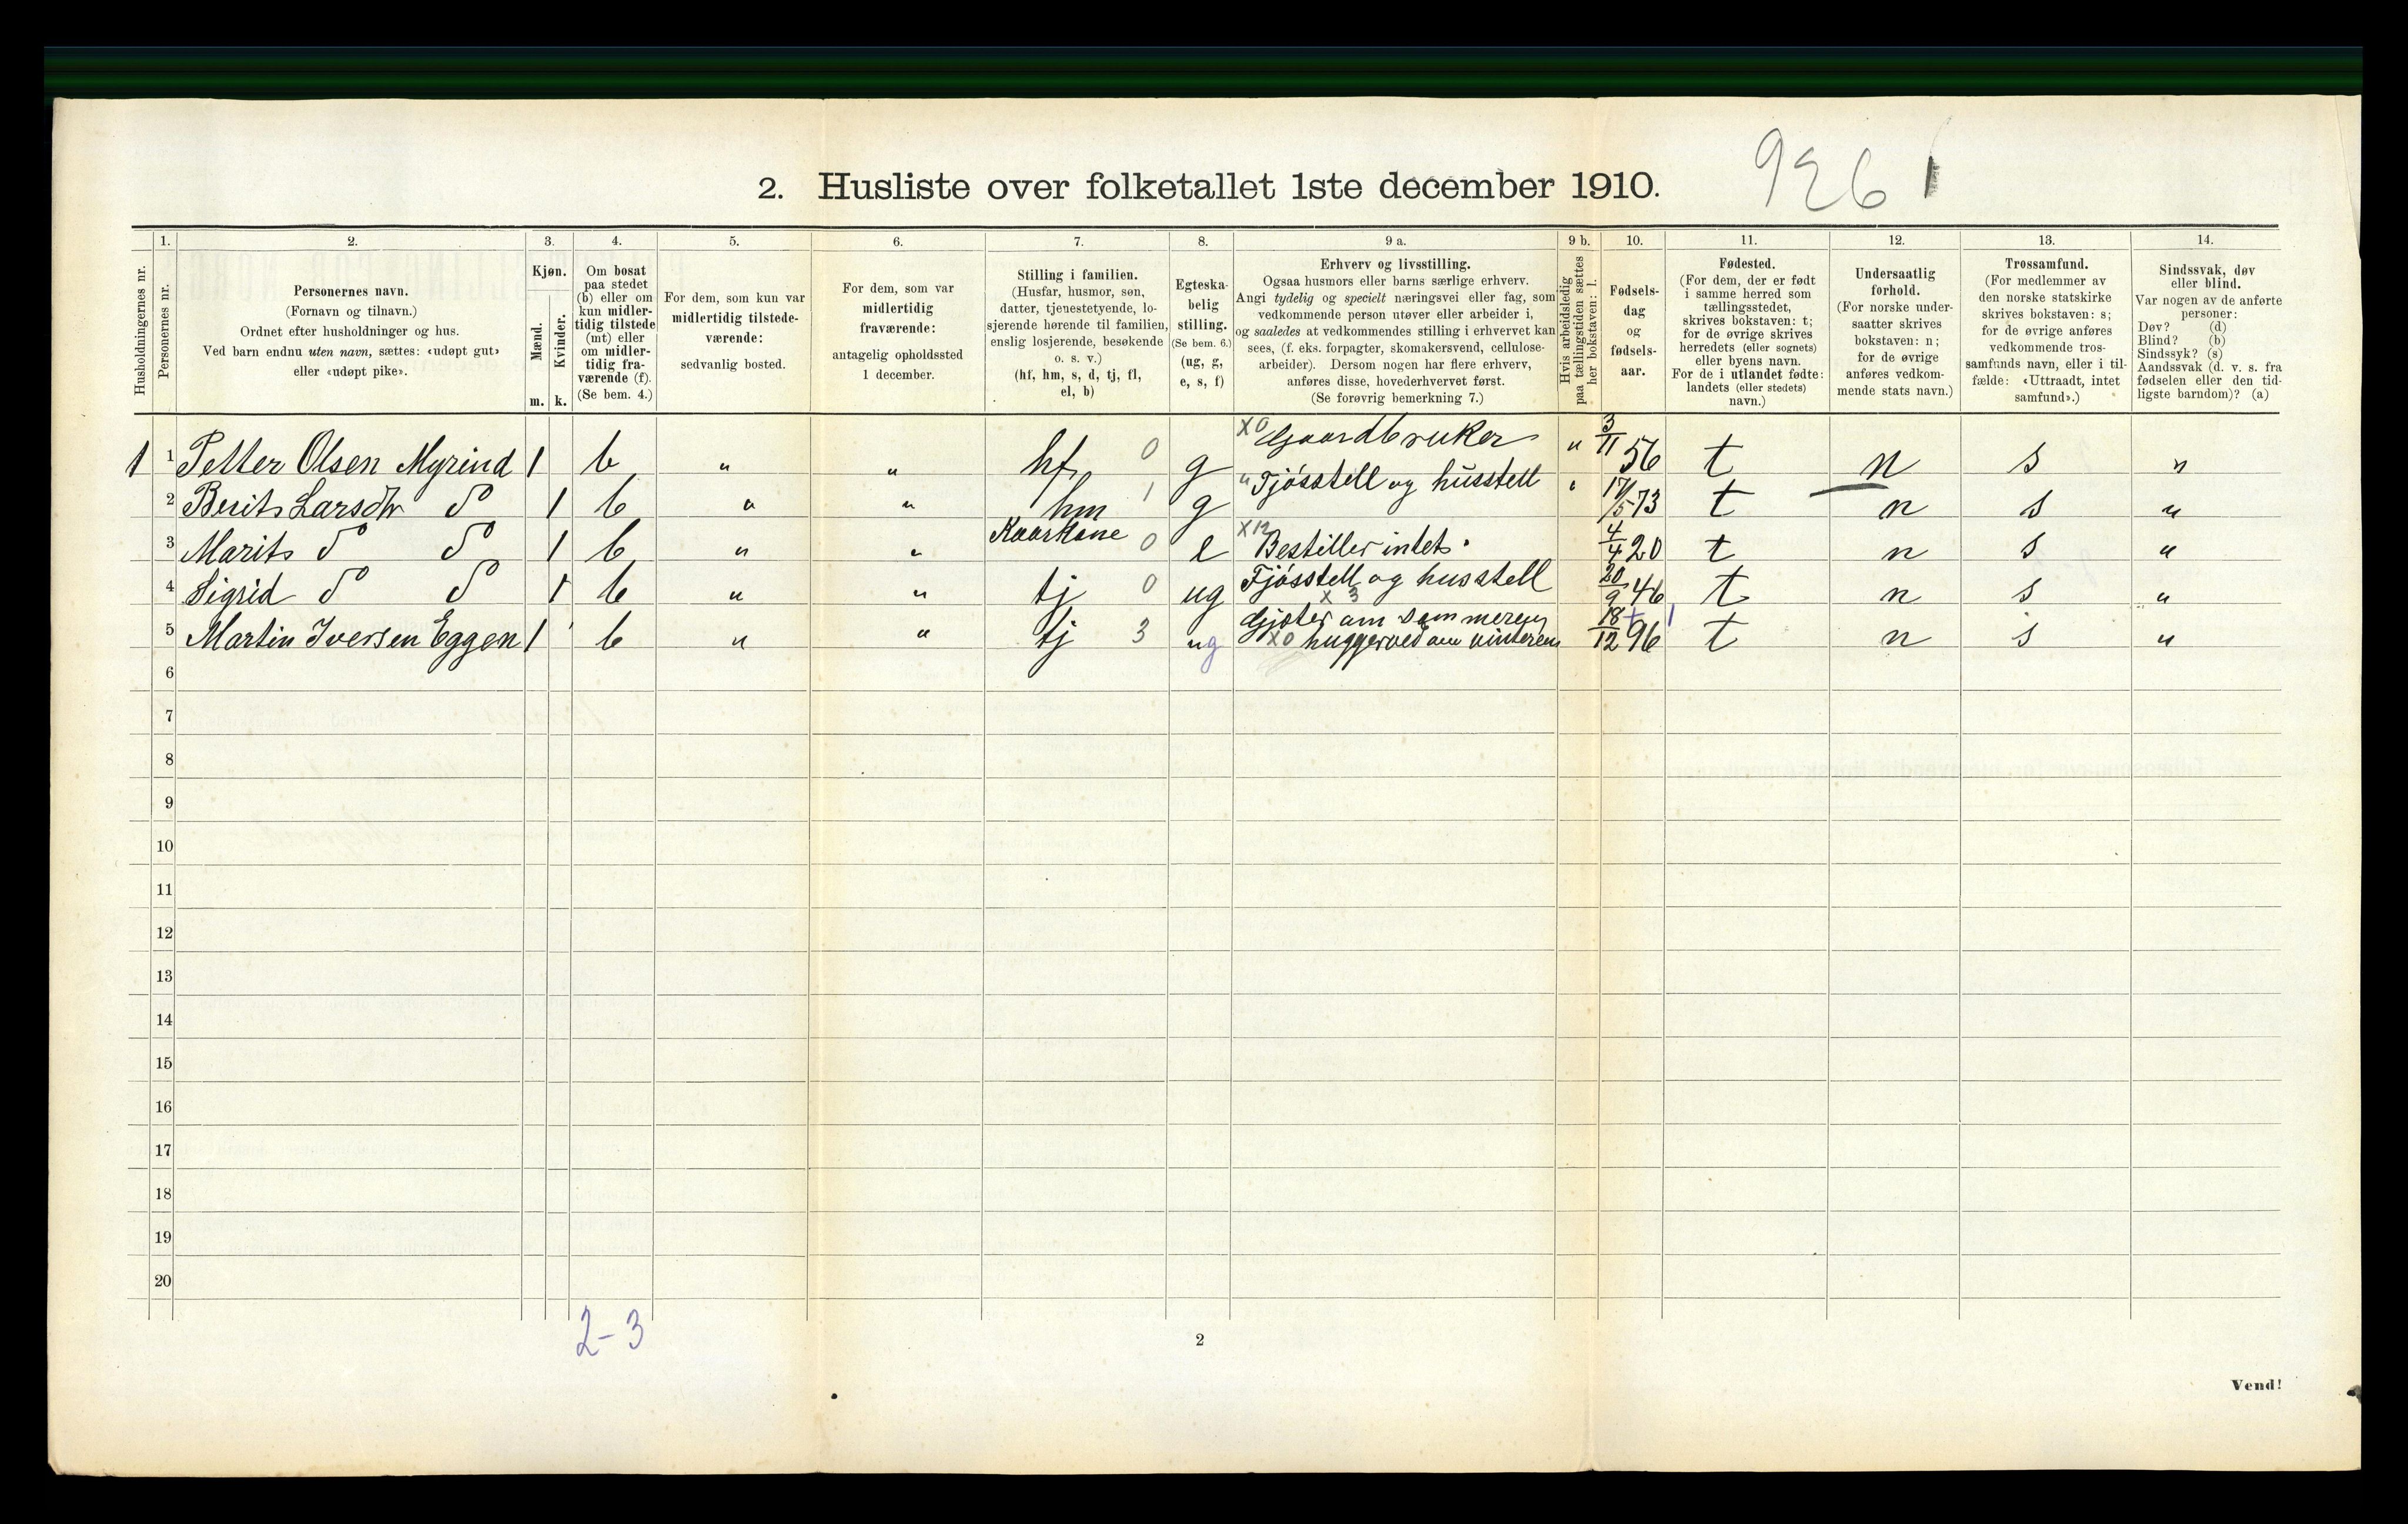 2. Husliste over folketallet 1ste december 1910.
926 1
Husholdningernes nr.
1.
Personernes nr.
2.
Personernes navn.
(Fornavn og tilnavn.)
Ordnet efter husholdninger og hus.
Ved barn endnu uten navn, sættes: «udøpt gut»
eller «udøpt pike».
3.
Kjøn.
Mænd.
Kvinder.
m. k.
4.
Om bosat
paa stedet
(b) eller om
kun midler-
tidig tilstede
(mt) eller
om midler-
tidig fra-
værende (f).
(Se bem. 4.)
5.
For dem, som kun var
midlertidig tilstede-
værende:
sedvanlig bosted.
6.
For dem, som var
midlertidig
fraværende:
antagelig opholdssted
1 december.
7.
Stilling i familien.
(Husfar, husmor, søn,
datter, tjenestetyende, lo-
sjerende hørende til familien,
enslig losjerende, besøkende
o. s. v.)
(hf, hm, s, d, tj, fl,
el, b)
8.
Egteska-
belig
stilling.
(Se bem. 6.)
(ug, g,
e, s, f)
9 a.
Erhverv og livsstilling.
Ogsaa husmors eller barns særlige erhverv.
Angi tydelig og specielt næringsvei eller fag, som
vedkommende person utøver eller arbeider i,
og saaledes at vedkommendes stilling i erhvervet kan
sees, (f. eks. forpagter, skomakersvend, cellulose-
arbeider). Dersom nogen har flere erhverv,
anføres disse, hovederhvervet først.
(Se forøvrig bemerkning 7.)
9 b.
Hvis arbeidsledig
paa tællingstiden sættes
her bokstaven: l.
10.
Fødsels-
dag
og
fødsels-
aar.
11.
Fødested.
(For dem, der er født
i samme herred som
tællingsstedet,
skrives bokstaven: t;
for de øvrige skrives
herredets (eller sognets)
eller byens navn.
For de i utlandet fødte:
landets (eller stedets)
navn.)
12.
Undersaatlig
forhold.
(For norske under-
saatter skrives
bokstaven: n;
for de øvrige
anføres vedkom-
mende stats navn.)
13.
Trossamfund.
(For medlemmer av
den norske statskirke
skrives bokstaven: s;
for de øvrige anføres
vedkommende tros-
samfunds navn, eller i til-
fælde: «Uttraadt, intet
samfund».)
14.
Sindssvak, døv
eller blind.
Var nogen av de anførte
personer:
Døv? (d)
Blind? (b)
Sindssyk? (s)
Aandssvak (d. v. s. fra
fødselen eller den tid-
ligste barndom)? (a)
1 1 Petter Olsen Myrind 1 b " " hf 0 g X0 Gaardbruker " 3/11 56 t n s "
2 Berit Larsdtr do 1 b " " hm 1 g " Fjösstell og husstell " 17/5 73 t n s "
3 Marit do do 1 b " " Kaarkone 0 e X12 Bestiller intet. 4/4 20 t n s "
4 Sigrid do do 1 b " " tj 0 ug Fjösstell og husstell X 3 20/9 46 t n s "
5 Martin Iversen Eggen 1 b " " tj 3 ug Gjæter om sommeren X0 hugger ved om vinteren 18/12 96 + 1 t n s "
6
7
8
9
10
11
12
13
14
15
16
17
18
19
20
2-3
2
Vend!